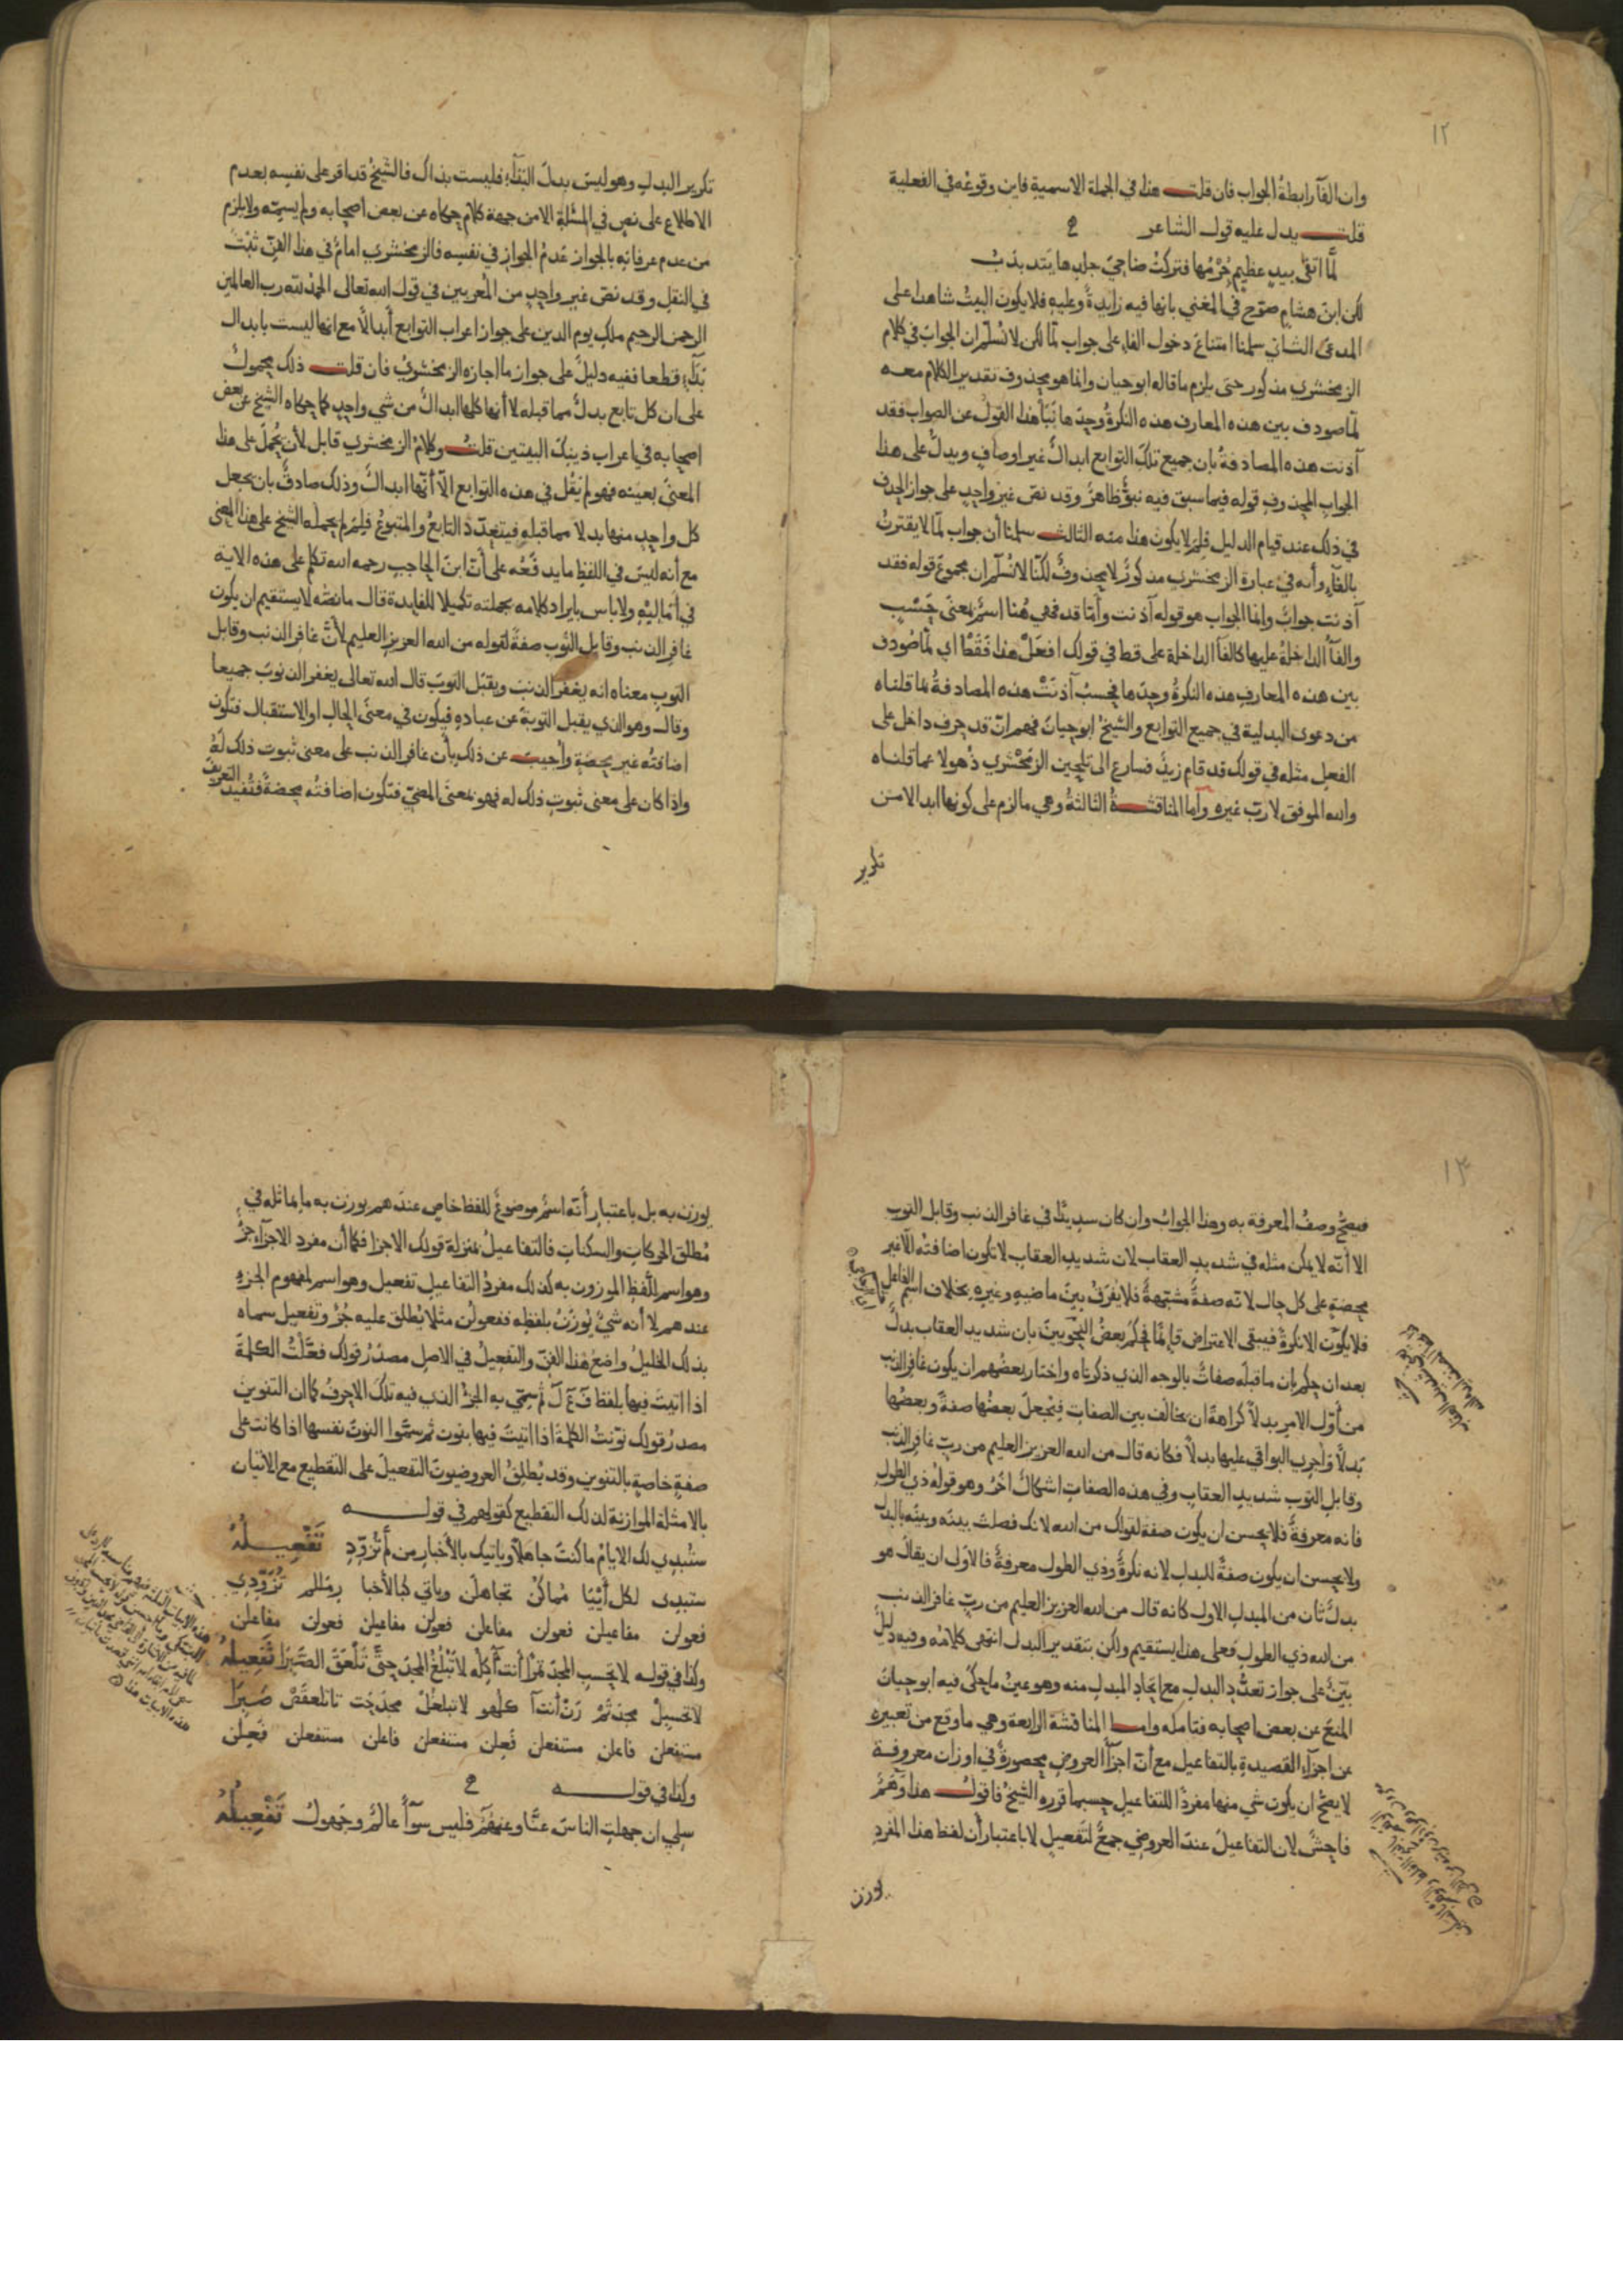 ١٢
وان الفآ رابطةُ الجواب فان قلت هذا في الجملة الاسمية فاين وقوعُه في الفعلية
قلت يدل عليه قول الشاعر
لمَّا اتقى بيدٍ عظيمٍ جُرْمُها فتركتُ ضاحيَ جلدِها يتذبذبُ
لكن ابنَ هشام صرّح في المغني بانها فيه زايدةٌ وعليه فلا يكون البيتُ شاهدا على
المدعى الثاني سلمنا امتناعَ دخول الفاءِ على جواب لمّا لكن لا نُسلّم ان الجوابَ في كلام
الزمخشري مذكور حتى يلزم ما قاله ابو حيان وانما هو محذوف تقدير الكلام معه
لمّا صودف بين هذه المعارف هذه النكرةُ وحدَها نَبَا هذا القولُ عن الصواب فقد
آذنت هذه المصادفةُ بان جميع تلك التوابع ابدالٌ غير اوصافٍ ويدلُّ على هذا
الجوابِ المحذوفِ قوله فيما سبق فيه نبوٌّ ظاهرٌ وقد نصّ غيرُ واحدٍ على جوازِ الحذف
في ذلك عند قيام الدليل فلِمَ لا يكون هذا منه الثالث سلمنا أن جواب لمّا لا يقترنُ
بالفآءِ وأنه في عبارة الزمخشري مذكورٌ لا محذوفٌ لكنّا لا نُسلّم ان مجموعَ قوله فقد
آذنت جوابٌ وانما الجواب هو قوله آذنت وأمّا قد فهي هُنا اسمٌ بمعنى حَسْبٍ
والفآُ الداخلةُ عليها كالفآ الداخلة على قط في قولك افعَلْ هذا فَقَطْ اي لمّا صُودف
بين هذه المعارفِ هذه النكرةُ وحدَها فحسبُ آذنَتْ هذه المصادفةُ بما قلناه
من دعوى البدلية في جميع التوابع والشيخُ ابو حيانَ فهم انّ قد حرف داخل على
الفعلِ مثله في قولك قد قام زيدٌ فسارع الى تلحين الزمَخْشري ذُهولا عما قلناه
والله الموفق لا ربّ غيره وأما المناقشةُ الثالثةُ وهي ما الزم على كونها ابدالا من
تكرير
تكرير البدلِ وهو ليسَ بدلَ البَدَآءِ فليست بذاك فالشيخُ قد اقر على نفسِه بعدم
الاطلاع على نصٍ في المسئلةِ الا من جهة كلامٍ حكاه عن بعض اصحابه ولم يسمِّه ولا يلزم
من عدم عرفانِه بالجواز عَدمُ الجوازِ في نفسِه فالزمخشري امامٌ في هذا الفنِّ ثَبْتٌ
في النقلِ وقد نصّ غير واحدٍ من المُعربين في قول الله تعالى الحمدُ لله رب العالمين
الرحمن الرحيم ملكِ يوم الدين على جواز اعراب التوابع أبدالًا مع انها ليست بابدال
بَدَآءٍ قطعا ففيه دليلٌ على جواز ما اجازه الزمخشريُ فان قلت ذلك محمولٌ
على ان كل تابع بدلٌ مما قبله لا أنها كلها ابدالٌ من شيٍ واحدٍ كما حكاه الشيخ عن بعض
اصحابه في اعراب ذينك البيتين قلتُ وكلامُ الزمخشري قابل لأن يُحملَ على هذا
المعنى بعينه فهو لم يَقُل في هذه التوابع الّا أنّها ابدالٌ وذلك صادقٌ بان يجعل
كل واحدٍ منها بدلا مما قبله فيتعدّدُ التابعُ والمتبوعُ فلِمَ لم يحملْه الشيخ على هذا المعنى
مع أنه ليسَ في اللفظِ ما يدفَعُه على أنّ ابنَ الحاجب رحمه الله تكلم على هذه الاية
في أمَاليْهِ ولا باس بايراد كلامه بجملته تكميلا للفايدة قال ما نصُّه لا يستقيم ان يكون
غافرِ الذنب وقابلِ التَّوب صفةً لقوله من الله العزيز العليم لأنَّ غافر الذنب وقابل
التوب معناه انه يغفر الذنب ويقبَل التوبَ قال الله تعالى يغفر الذنوبَ جميعا
وقال وهو الذي يقبل التوبةَ عن عبادِهِ فيكون في معنى الحالِ او الاستقبال فتكون
اضافتُه غيرَ محضةٍ وأجيبَ عن ذلك بأن غافر الذنب على معنى ثبوت ذلك لَهُ
واذا كان على معنى ثبوتِ ذلك له فهو بمعنى المضيّ فتكون اضافتُه محضةً فتُفيد التعريفَ
١٣
فيصحّ وصفُ المعرفة به وهذا الجوابُ وان كان سديدًا في غافر الذنب وقابل التوب
الا أنّه لا يمكن مثله في شديد العقاب لان شديد العقاب لا تكون اضافتُه الا غير
محضةٍ على كل حال لانّه صفةٌ مشبّهةٌ فلا يُفرَقُ بينَ ماضيهِ وغيرِهِ بخلاف اسم الفاعل
فلا يكونُ الا نكرةً فيبقى الاعتراض قائمًا فحكمَ بعضُ النحويينَ بان شديد العقاب بدلٌ
بعد ان حكم بان ما قبلَه صفاتٌ بالوجه الذي ذكرناه واختار بعضُهم ان يكون غافرِ الذنبِ
من أوّل الامر بدلًا كراهةَ ان يخالَف بين الصفاتِ فيُجعلَ بعضُها صفةً وبعضُها
بدلًا وأُجري البواقي عليها بدلًا فكانه قال من الله العزيز العليم من ربٍّ غافرِ الذنبِ
وقابل التوب شديدِ العقاب وفي هذه الصفاتِ اشكالٌ آخَرُ وهو قولُه ذي الطولِ
فانه معرفةٌ فلا يحسن ان يكون صفة لقولك من الله لانك فصلتَ بينَه وبينَه بالبدل
ولا يحسن ان يكون صفةً للبدلِ لانه نكرةٌ وذي الطول معرفةٌ فالأوْلَى ان يقالَ هو
بدلٌ ثانٍ من المبدلِ الاول كانه قال من الله العزيز العليم من ربٍّ غافرِ الذنب
من الله ذي الطولِ فعلى هذا يستقيم ولكن بتقدير البدل انتهى كلامُه وفيه دليلٌ
بيّنٌ على جواز تعدُّد البدلِ مع اتحادِ المبدلِ منه وهو عينُ ما حكَى فيه ابو حيانَ
المنعَ عن بعض اصحابه فتامله واما المناقشة الرابعة وهي ما وقع من تعبيره
عن اجزآءِ القصيدةِ بالتفاعيل مع أنّ اجزآءَ العروضِ محصورةٌ في اوزان معروفة
لا يصحّ ان يكون شي منها مفردًا للتفاعيل حسبما قرره الشيخُ فاقولُ هذا وَهَمٌ
فاحشٌ لان التفاعيلَ عندَ العروضي جمعٌ لتَفعيلٍ لا باعتبار أن لفظ هذا المفردِ
يوزن
يوزن به بل باعتبار أنّه اسمٌ موضوعٌ للفظٍ خاص عندَهم يوزن به ما يماثله في
مُطلق الحركاتِ والسكناتِ فالتفاعيلُ بمنزلة قولك الاجزا فكما أن مفرد الاجزآءِ جزءٌ
وهو اسم للّفظِ الموزون به كذلك مفردُ التفاعيلِ تفعيل وهو اسم لمفهومِ الجزءِ
عندهم لا أنه شيٌ يُوزَنُ بلفظِه ففعولن مثلا يُطلق عليه جُزْءٌ وتفعيل سماه
بذلك الخليلُ واضعُ هذا الفنِّ والتفعيلُ في الاصل مصدَرُ قولك فعَّلْتُ الكلمةَ
اذا اتيتَ فيها بلفظ فَ عَ لَ ثم سمّي به الجزءُ الذي فيه تلك الاحرفُ كما ان التنوينَ
مصدرُ قولك نوّنتُ الكلمةَ اذا اتيتَ فيها بنونٍ ثم سمَّوا النونَ نفسها اذا كانت على
صفةٍ خاصةٍ بالتنوين وقد يُطلِقُ العروضيونَ التفعيلَ على التقطيع مع الاتيان
بالامثلة الموازنة لذلك التقطيع كقولهم في قوله
ستُبدِي لك الايامُ ما كنتَ جاهلًا وياتيك بالأخبارِ من لم تُزَوِّدِ تَفْعِيلُهُ
ستبدي لكل أيْيَا مُماكنْ تجاهلَن وياتي كبالأخبا رِمَنلم تُزَوْوِدِي
فعولن مفاعيلن فعولن مفاعلن فعولن مفاعيلن فعولن مفاعلن
وكذا في قوله لا تحسبِ المجدَ تمرًا أنتَ آكِلُه لا تَبْلُغُ المجدَ حتَّى تَلْعَقَ الصَّبِرَا تَفْعِيلُهُ
مستفعلن فاعلن مستفعلن فَعِلن مستفعلن فاعلن مستفعلن فَعِلن
وكذا في قوله
سلي ان جهلتِ الناسَ عنَّا وعنهُمُ فليس سوآءً عالمٌ وجَهولُ تَفْعِيلُهُ